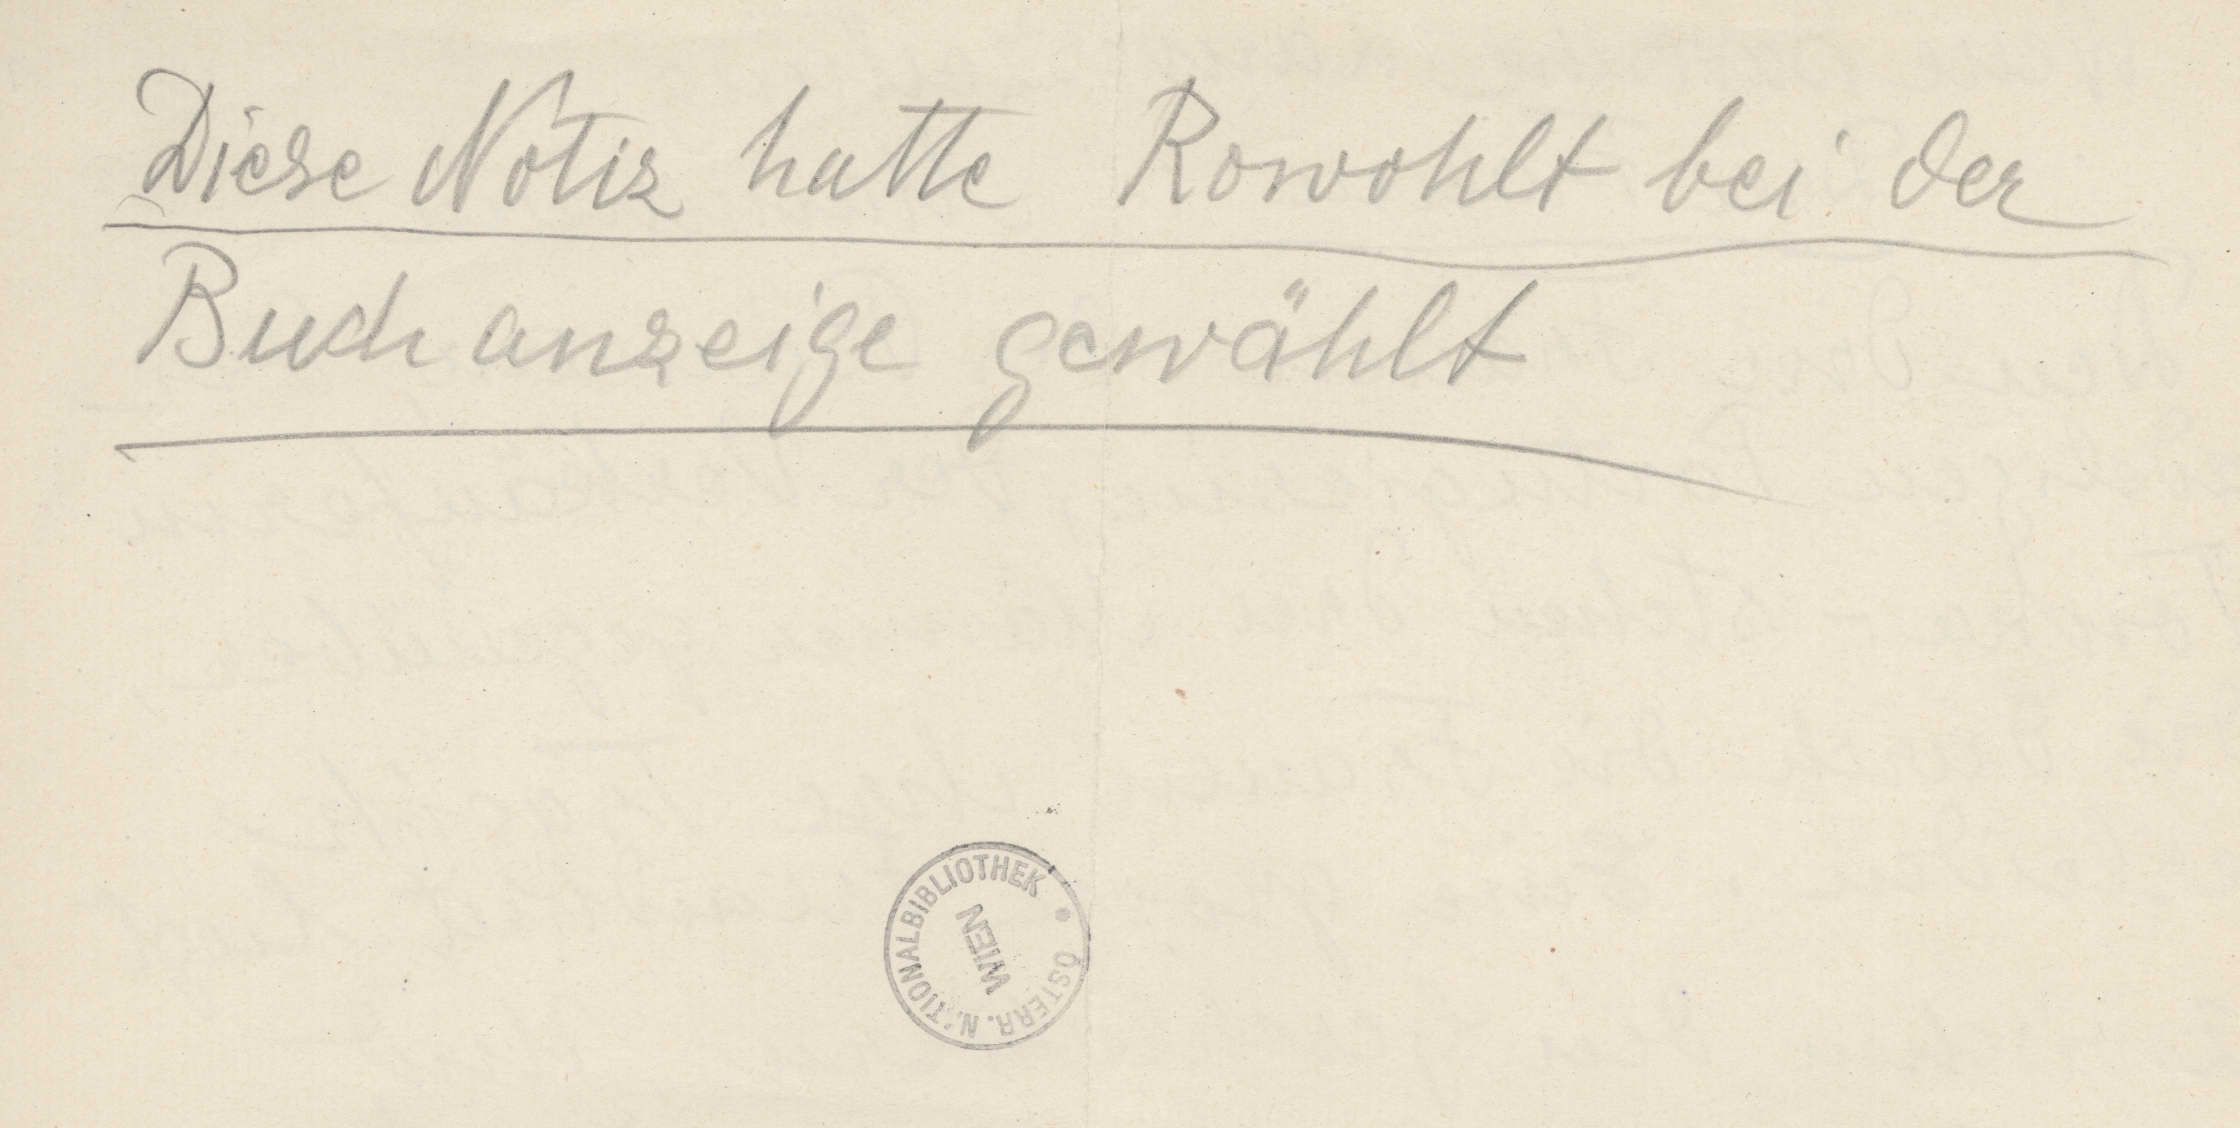 Diese Notiz hatte Rowohlt bei der
Buchanzeige gewählt
ÖSTERR. NATIONALBIBLIOTHEK
WIEN